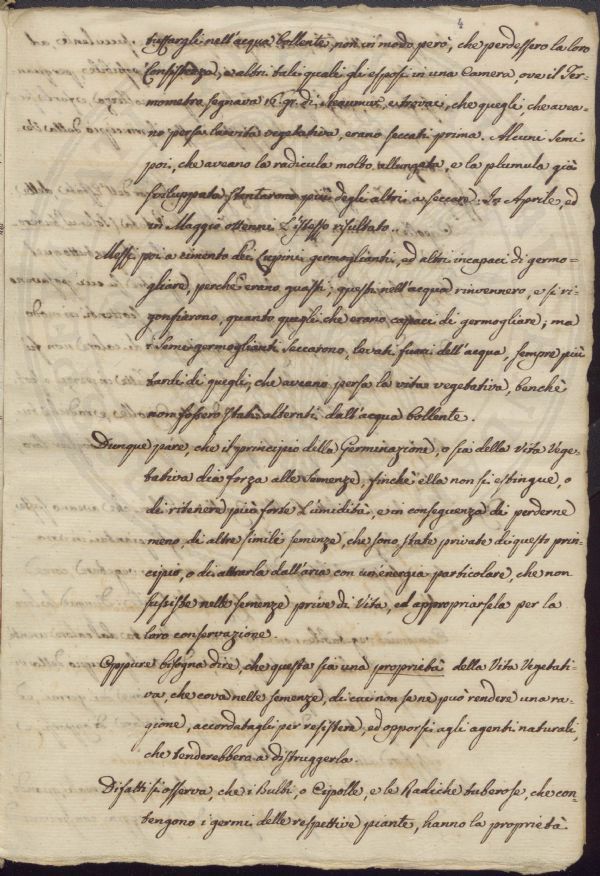 4
tuffargli nell'acqua bollente, non in modo però, che perdessero la loro
Consistenza, e altri tali quali gli esposi in una Camera, ove il Ter-
mometro segnava 16 gr. di Reaumur, e trovai, che quegli, che avea-
no persa la vita vegetativa, erano seccati prima. Alcuni semi
poi, che aveano la radicula molto allungata, e la plumula già
sviluppata stentarono più degli altri a seccare. In Aprile, ed
in Maggio ottenni l'istesso risultato.
Messi poi a cimento dei Lupini germoglianti, ed altri incapaci di germo-
gliare, perchè erano guasti; questi nell'acqua rinvennero, e si ri-
gonfierono, quanto quegli che erano capaci di germogliare; ma
i Semi germoglianti seccarono, levati fuori dell'acqua, sempre più
tardi di quegli, che aveano persa la vita vegetativa, benchè
non fossero stati alterati dall'acqua bollente.
Dunque pare, che il principio della Germinazione, o sia della Vita Vege-
tativa dia forza alle Semenze, finchè ella non si estingue, o
di ritenere più forte l'umidità, e in conseguenza di perderne
meno, di altre simili semenze, che sono state private di questo prin-
cipio, o di attrarla dall'aria con un'energia particolare, che non
sussiste nelle semenze prive di Vita, ed appropriarsela per la
loro conservazione.
Oppure bisogna dire, che questa sia una proprietà della Vita Vegetati-
va, che cova nelle semenze, di cui non se ne può rendere una ra-
gione, accordatagli per resistere, ed opporsi agli agenti naturali,
che tenderebbero a distruggerla.
Difatti si osserva, che i Bulbi, o Cipolle, e le Radiche tuberose, che con-
tengono i germi delle respettive piante, hanno la proprietà